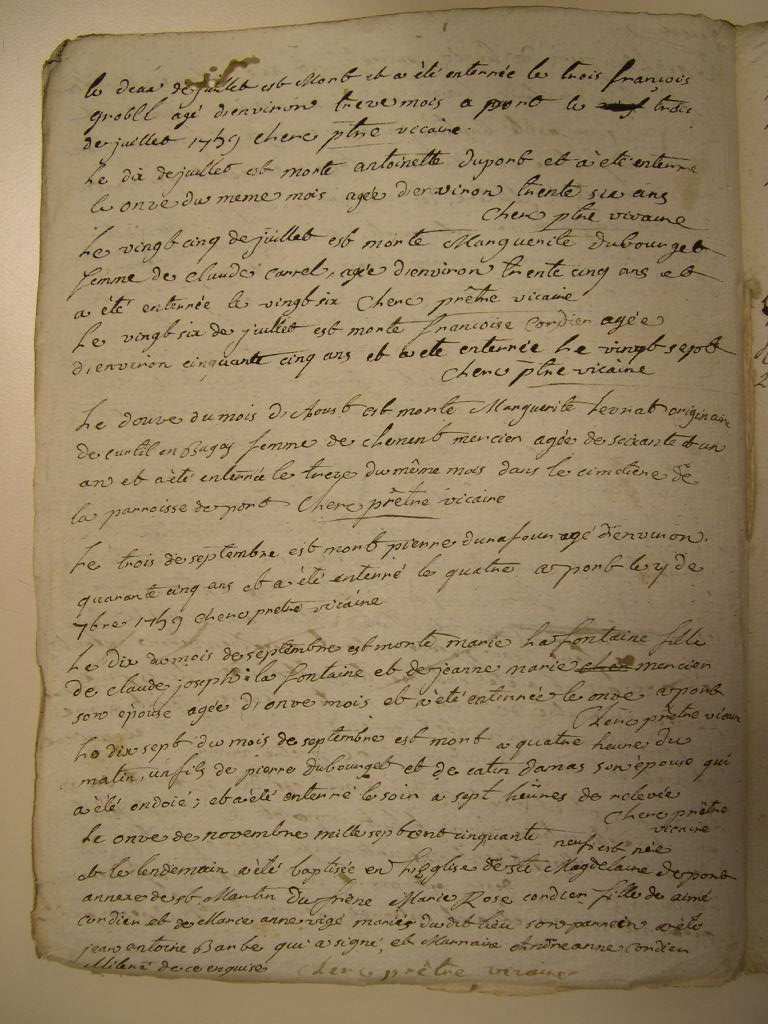 le deux de juillet est Mort et a été enterrée le trois françois
grobll agé d'environ treve mois a port le trois
de juillet 1759 Cherc ptre vicaire.
Le dix de juillet est morte antoinette duport et a été enterre
le onve du meme mois agée d'environ trente six ans
Cherc ptre vivaire
Le vingt cinq de juillet est morte Marguerite dubourget
femme de claude carrel, agée d'environ trente cinq ans et
a été enterrée le vingt six Cherc prêtre vicaire
Le vingt six de juillet est morte francoise Cordier agée
d'environ cinquante cinq ans et a eté enterrée Le vingt sept
Cherc ptre vicaire
Le douve du mois d'Aoust est morte Marguerite originaire
de curtil en Bugay femme de mercier agée de soixante et un
an et a été enterrée le treze du même mois dans le cimetiere de
la parroisse de port Cherc prêtre vicaire
Le trois de septembre est mort pierre dunafour agé d'environ
quarante cinq ans et a été enterré le quatre a port le 4 de
7bre 1759 Cherc pretre vicaire
Le dix du mois de septembre est morte marie La fontaine fille
de claude joseph la fontaine et de jeanne marie mercier
son epouse agée d'onve mois et a été enterrée le onve a port
Cherc prêtre vicaire
Le dix sept du mois de septembre est mort a quatre heure du
matin, un fils de pierre dubourget et de catin danas son épouse qui
a été ondoié; et a été enterré le soir a sept heures de relevée
Cherc prêtre
vicaire
Le onve de novembre mille sept cent cinquante neuf est née
et le lendemain a été baptisée en l'Eglise de Ste Magdelaine de port
annexe de st Martin du frêne Marie Rose cordier fille de aimé
cordier et de anne vigé mariés du dit lieu son parrain a été
jean antoine Barbe qui a signé, et Marraine anne cordier
de ce enquise Cherc prêtre vicaire